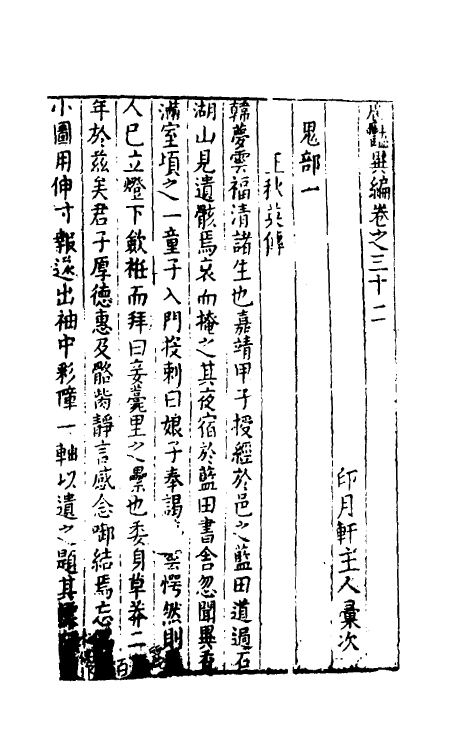 廣艷異編卷之三十二
印月軒主人彙次
鬼部一
王秋英傳
韓夢雲福清諸生也嘉靖甲子授經於邑之藍田道過石
湖山見遺骸焉哀而掩之其夜宿於藍田書舍忽聞異香
滿室頃之一童子入門投刺曰娘子奉謁雲愕然則
人已立燈下斂衽而拜曰妾蘷里之纍也委身草莽二百
年於茲矣君子厚德惠及骼胔靜言感念啣結焉忘
小圖用伸寸報遂出袖中彩障一軸以遺之題其